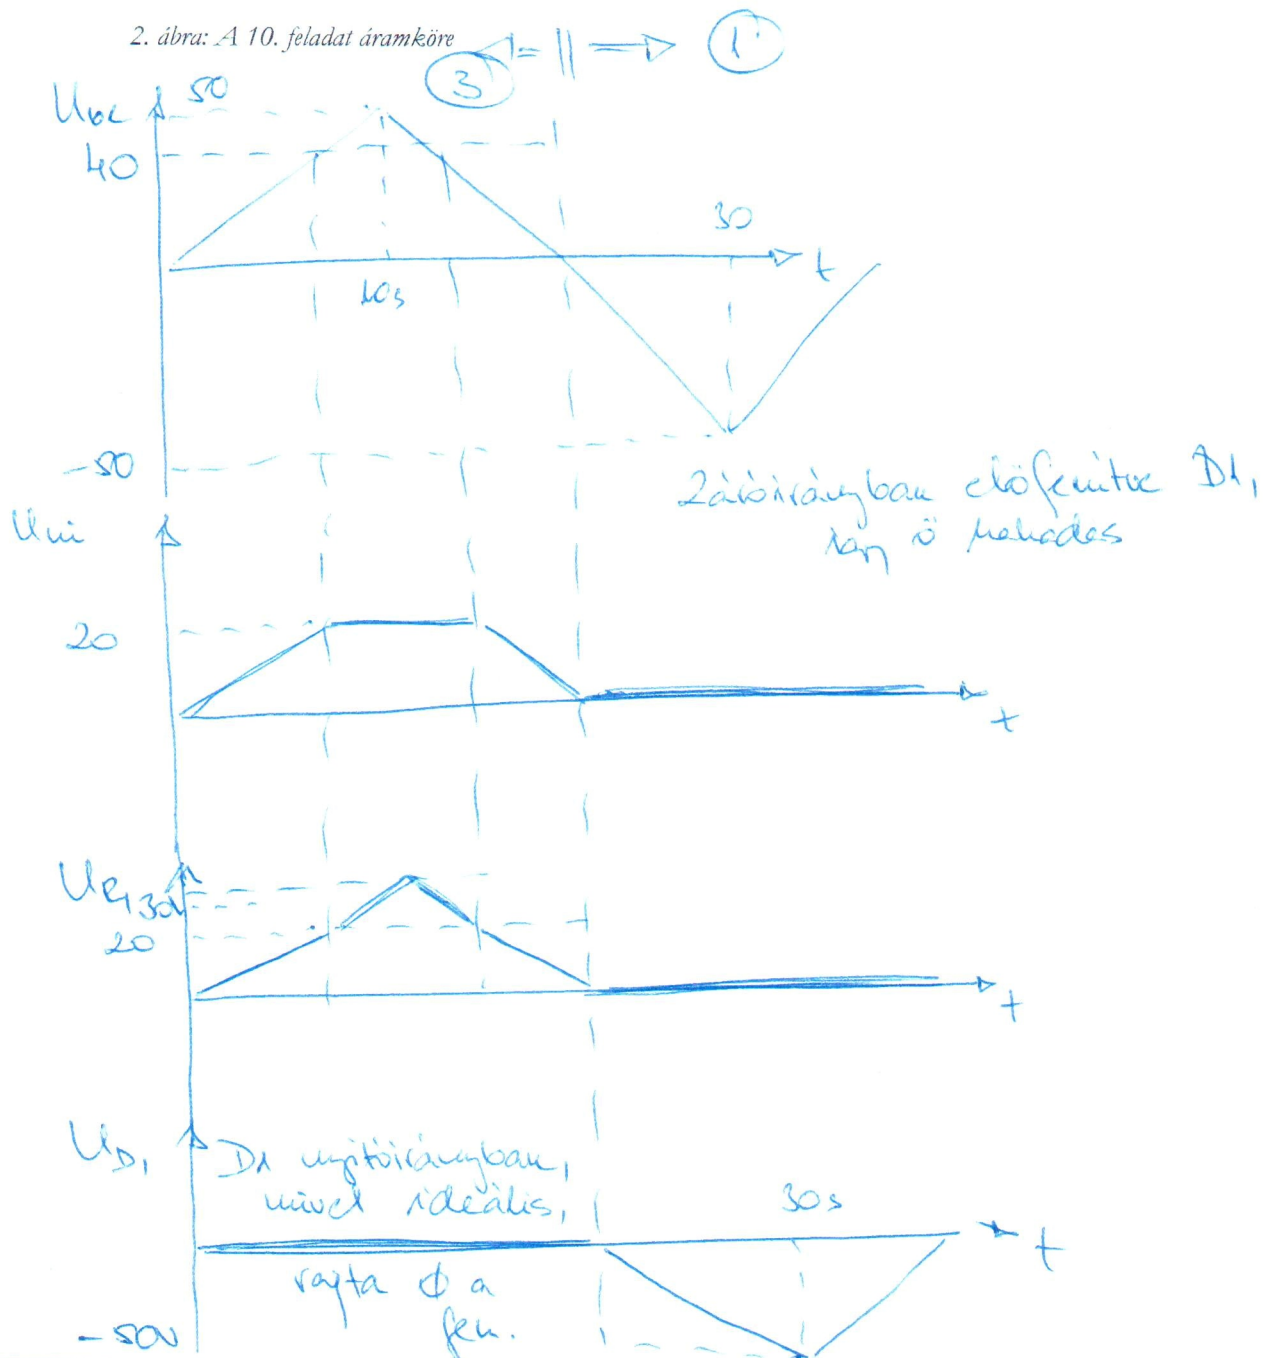 2. ábra: A 10. feladat áramköre
3 = || → 1
Ube 50
40
30
t
10s
-50
Záróirányban előfeszítve D1,
így ő szakadás
Uki
20
t
UR1 30V
20
t
UD1 D1 nyitóirányban,
mivel ideális,
30s
t
rajta 0 a
fesz.
-50V